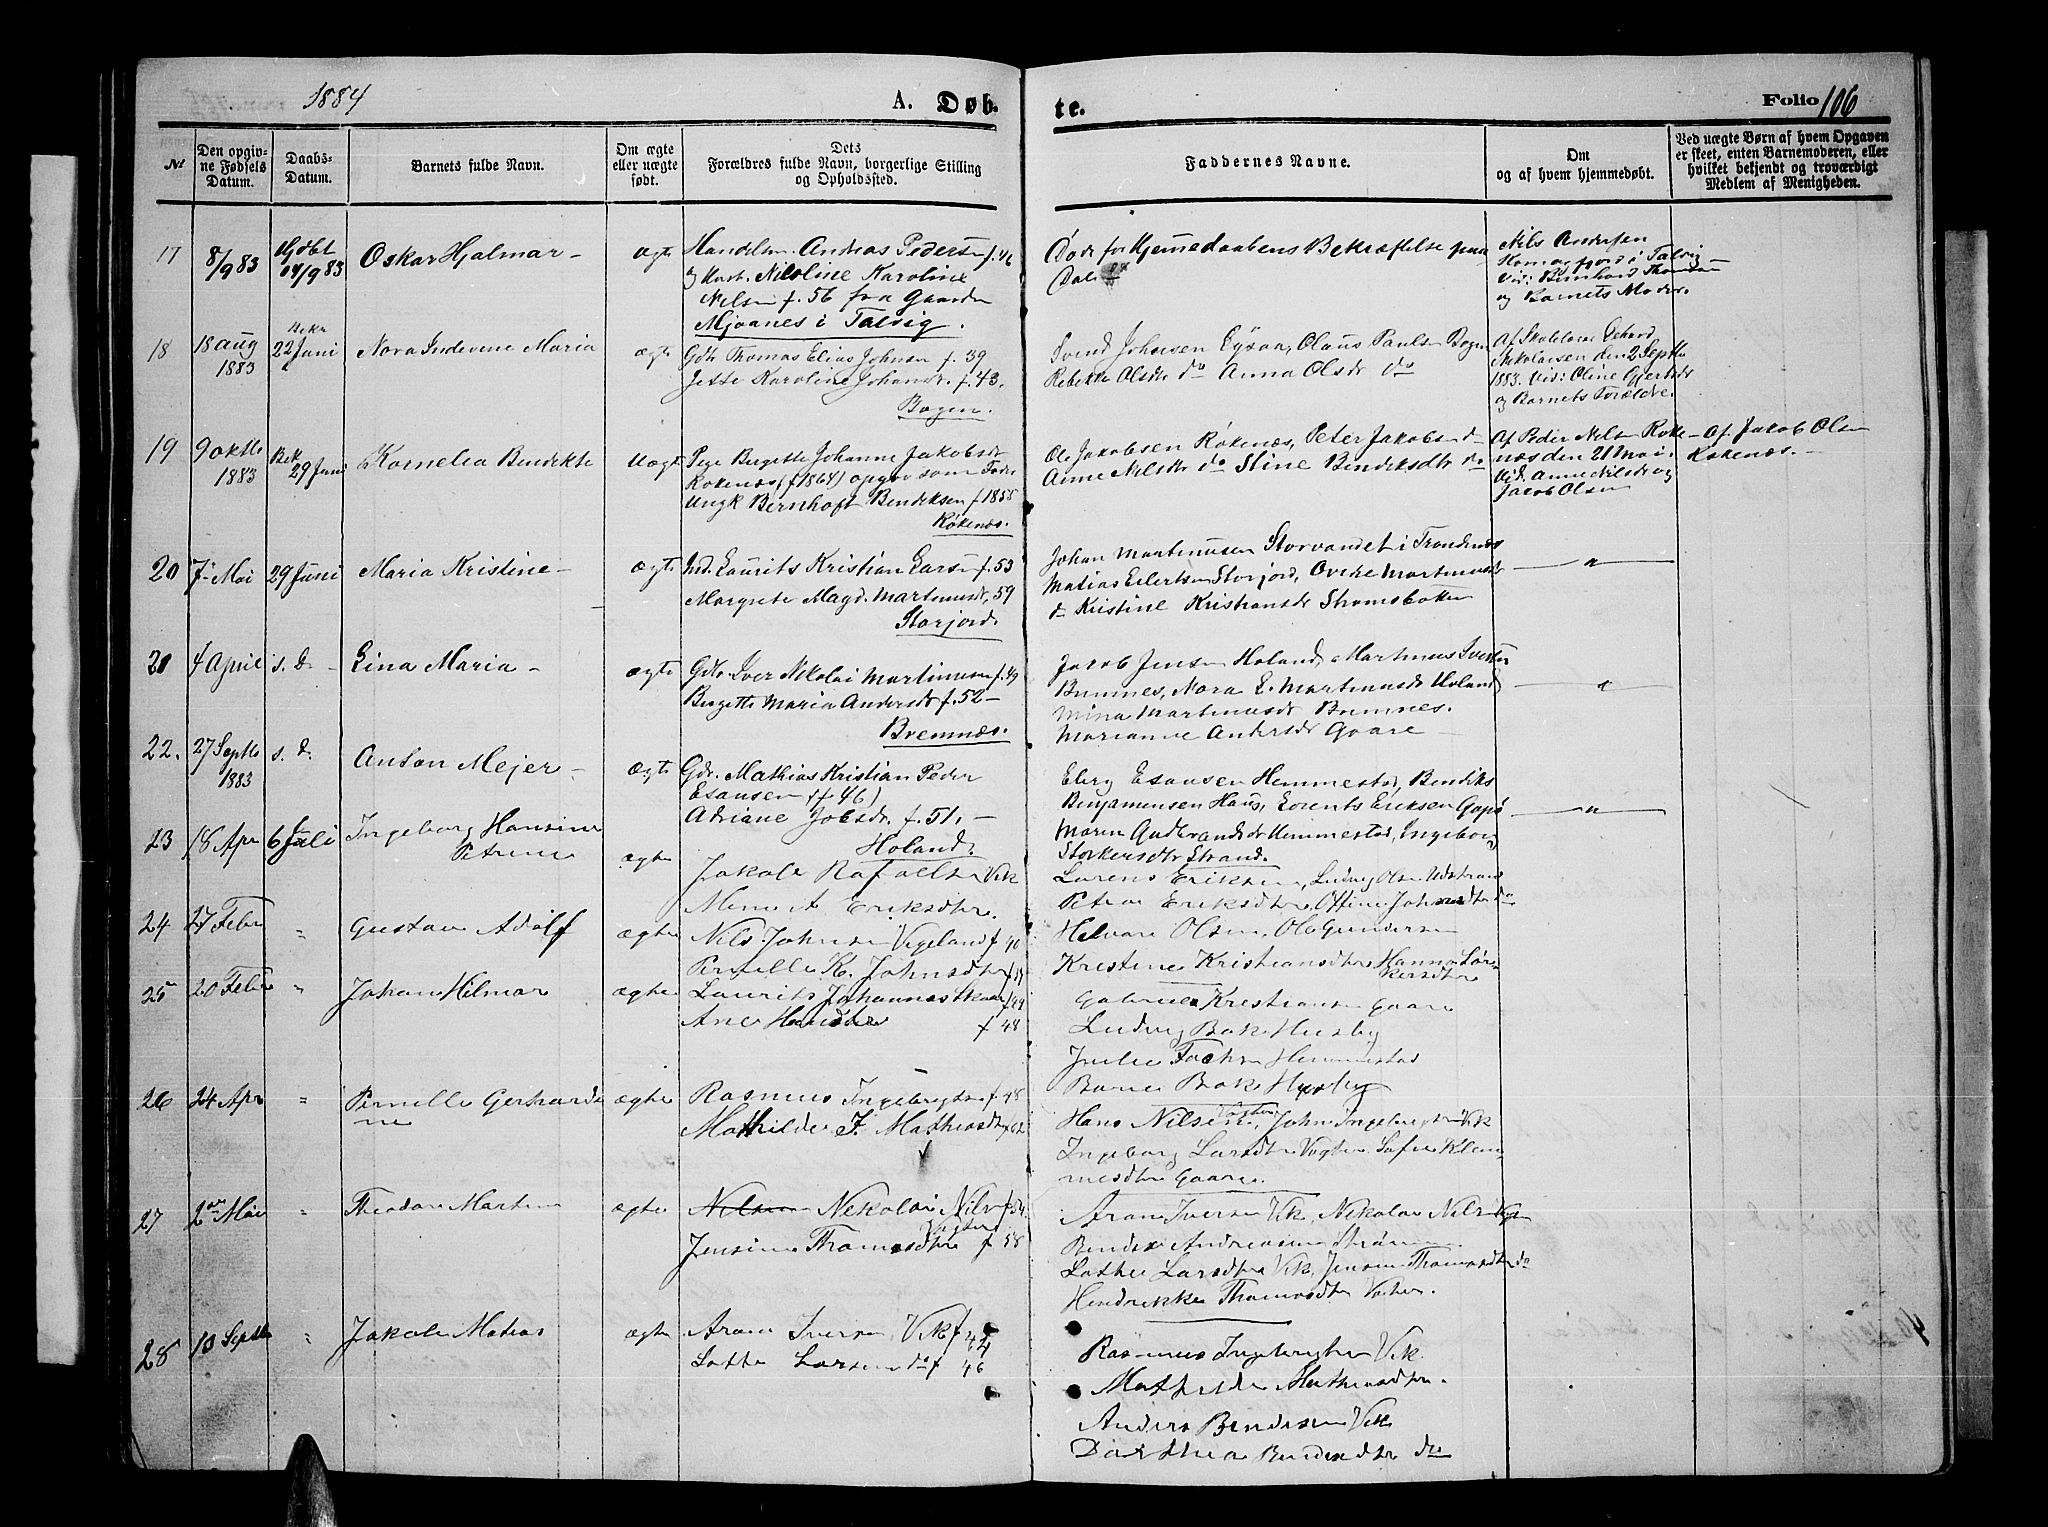 1884
A. Døb-
te.
Folio 106
№
Den opgiv-
ne Fødsels
Datum.
Daabs-
Datum.
Barnets fulde Navn.
Om ægte
eller uægte
født.
Dets
Forældres fulde Navn, borgerlige Stilling
og Opholdssted.
Faddernes Navne.
Om
og af hvem hjemmedøbt.
Ved uægte Børn af hvem Opgaven
er skeet, enten Barnemoderen, eller
hvilket bekjendt og troværdigt
Medlem af Menigheden.
17
8/9 83
Hjdbt
14/9 83
Oskar Hjalmar
ægte
Andreas Pedersen f. 46
og Hust. Nicoline Karoline
Nilsen f. 56 fra Gaarden
Mjoanes i Talvig.
Døde før Hjemmedaabens Bekræftelse paa
Nils Andersen
i Talvig
Vid: Bernhard Thomsen
og Barnets Moder.
18
18 aug
1883
Bekr
22 Juni
Nora Indevine Maria
ægte
Gdbr Thomas Elias Johnsen f. 39
Jette Karoline Johansdr. f. 43.
Bogen.
Svend Johnsen Eysaa, Olaus Paulsen Bogen
Rebekka Olsdtr do Anna Olsdr do
Af Skolelærer Gerhard
Nikolaisen den 2 Septbr
1883. Vid: Oline Gjertsdr
og Barnets Forældre.
19
9 oktbr
1883
Bek
29 Juni
Kornelia Bendikte
Uægte
Pige Birgitte Johanna Jakobsdr
Røkenæs (f 1864) opgav som Fader
Ungk Bernhoft Bendiksen f 1858
Røkenæs.
Ole Jakobsen Røkenæs, Peter Jakobsen do
Anne Nilsdtr do Stine Bendiksdtr do
Af Peder Nilsen Røke-
næs den 21 Mai.
Vid. Anne Nilsdr og
Jacob Olsen
Af Jakob Olsen
Røkenæs.
20
7 Mai
29 Juni
Maria Kristine
ægte
Ind. Laurits Kristian Larsen f. 53
Margrete Magd. Martinusdr, 59
Storjord
Johan Martinusen Storvandet i Trondenæs
Matias Eilertsen Storjord, Ovidie Martinusdr
do Kristine Kristiansdr Strømsbotten
"
21
4 April
s. D.
Lina Maria
ægte
Gdbr. Iver Nikolai Martinusen f. 49
Birgitte Maria Andersdr f. 52
Bremnæs.
Jacob Jensen Holand, Martinus Iversen
Bremnes, Nora E. Martinusdr Holand
Mina Martinusdr Bremnes.
Marianne Andersdr Gaare
"
22.
27 Septbr
1883
s. D.
Anton Mejer
ægte
Gdr. Mathias Kristian Peder
Esausen (f 46)
Adriane Jobsdr. f. 51.
Holand.
Esausen Hemmestad, Bendiks
Benjaminsen Haus, Lorents Eriksen Gapø
Maren Hemmestad, Ingeborg
Storkersdtr Strand.
"
23
18 Apr
6 Juli
Ingeborg Hansine
Petrine
ægte
Jakob Rafaelsen Vik
Eriksdtr.
Lorens Eriksen, Ludvig Olsen
Petrine Eriksdtr, Johnsdtr do
24
27 Febr
"
Gustav Adolf
ægte
Nils Johnsen Vogeland f 40
Pernille K. Johnsdtr
Helvare Olsen, Ole Gundersen
Kristine Kristiansdtr, Hanna
25
20 Febr
"
Johan Hilmar
ægte
Laurits Johannes
Ane Hansdtr f 48
Kristiansen Gaare
Ludvig Bak Husby
Julie Hemmestad
Bak Husby
26
24 Apr
"
Pernille Gerhardi
ne
ægte
Rasmus Ingebrigtsen f. 48
Mathilde J. Mathiasdtr f 62
Hans Nilsen Vogter, John Ingebrigtsen Vik
Ingeborg Larsdtr Vogter Sofie Klem-
mesdtr Gaare
27
2den Mai
"
Theodor Martin
ægte
Nikolai Nilsen f 54.
Vogter
Jensine Thomasdtr f 58
Aron Iversen Vik, Nikolai Nilsen
Lotte Larsdtr Vik, Jensine Thomasdtr do
Hendrikke Thomasdtr Vogter.
28
10 Septbr
"
Jakob Matias
ægte
Aron Iversen Vik f 44
Lotte Larsen do f 46
Rasmus Ingebrigtsen Vik
Mathilde Mathiasdtr.
Anders Bendixen Vik
Dorthea Bendixdtr do